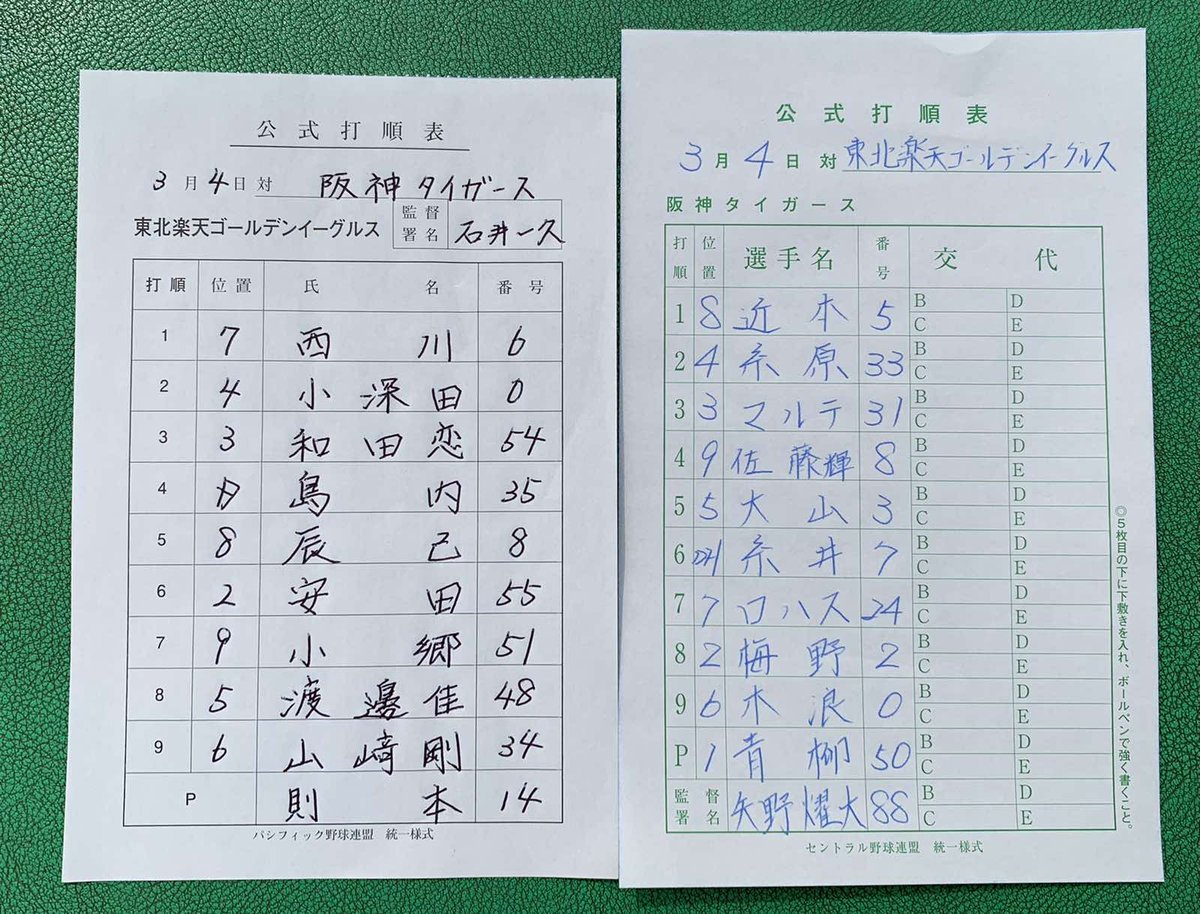 公式打順表
3月4日対 阪神タイガース
東北楽天ゴールデンイーグルス 監督署名 石井一久
打順 位置 氏名 番号
1 7 西川 6
2 4 小深田 0
3 3 和田恋 54
4 島内 35
5 8 辰己 8
6 2 安田 55
7 9 小郷 51
8 5 渡邊佳 48
9 6 山﨑剛 34
P 則本 14
パシフィック野球連盟 統一様式
公式打順表
3月4日対 東北楽天ゴールデンイーグルス
阪神タイガース
打順 位置 選手名 番号 交代
1 8 近本 5 B D
C E
2 4 糸原 33 B D
C E
3 3 マルテ 31 B D
C E
4 9 佐藤輝 8 B D
C E
5 5 大山 3 B D
C E
6 DH 糸井 7 B D
C E
7 7 ロハス 24 B D
C E
8 2 梅野 2 B D
C E
9 6 木浪 0 B D
C E
P 1 青柳 50 B D
C E
監督署名 矢野燿大 88 B D
C E
セントラル野球連盟 統一様式
◎5枚目の下に下敷きを入れ、ボールペンで強く書くこと。